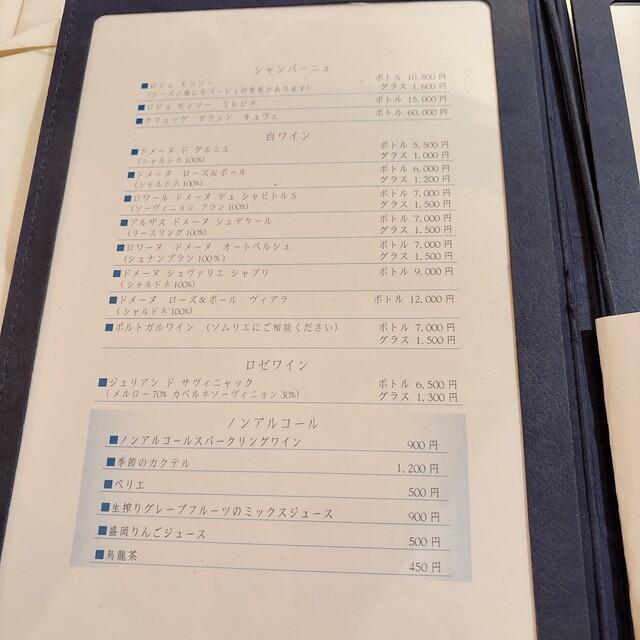 シャンパーニュ
■ロジュ モンソー ボトル 10,800円
(シーズン毎にセパージュの変更があります) グラス 1,600円
■ロジュ モンソー ミレジメ ボトル 15,000円
■クリュッグ グランド キュヴェ ボトル 60,000円
白ワイン
■ドメーヌ ド グルニエ ボトル 5,500円
(シャルドネ 100%) グラス 1,000円
■ドメーヌ ローズ&ポール ボトル 6,000円
(シャルドネ 100%) グラス 1,200円
■ロワール ドメーヌ デュ シャピトル S ボトル 7,000円
(ソーヴィニョン ブラン 100%) グラス 1,500円
■アルザス ドメーヌ シェデケール ボトル 7,000円
(リースリング 100%) グラス 1,500円
■ロワーヌ ドメーヌ オートペルシュ ボトル 7,000円
(シュナンブラン 100%) グラス 1,500円
■ドメーヌ シュヴァリエ シャブリ ボトル 9,000円
(シャルドネ 100%)
■ドメーヌ ローズ&ポール ヴィアラ ボトル 12,000円
(シャルドネ 100%)
■ポルトガルワイン (ソムリエにご相談ください) ボトル 7,000円
グラス 1,500円
ロゼワイン
■ジュリアン ド サヴィニャック ボトル 6,500円
(メルロー 70% カベルネソーヴィニョン 30%) グラス 1,300円
ノンアルコール
■ノンアルコールスパークリングワイン 900円
■季節のカクテル 1,200円
■ペリエ 500円
■生搾りグレープフルーツのミックスジュース 900円
■盛岡りんごジュース 500円
■烏龍茶 450円